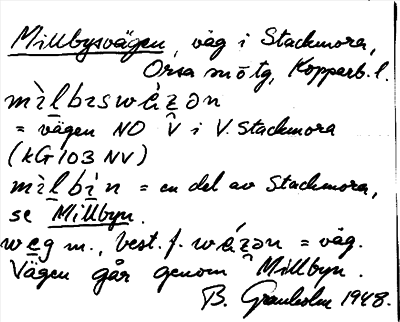 Millbysvägen, väg i Stackmora,
Orsa sn ö tg, Kopparb. l.
mìlbɪswǽzən
= vägen NO V̂ i V. Stackmora
(kG 103 NV)
mìlbɪ́n = en del av Stackmora,
se Millbyn.
weg m., best. f. wǽzən = väg.
Vägen går genom Millbyn.
B. Granholm 1948.